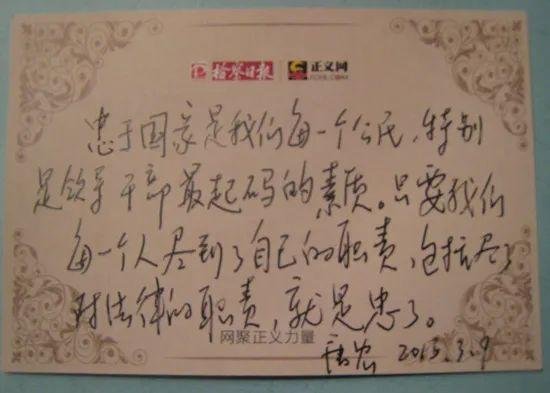 检察日报 正义网
JCRB.COM
忠于国家是我们每一个公民,特别
是领导干部最起码的素质。只要我们
每一个人尽到了自己的职责,包括尽了
对法律的职责,就是忠了。
网聚正义力量
2015.3.9